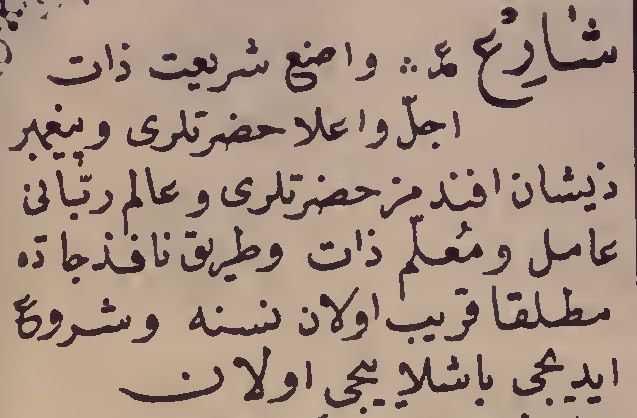 شارع عـ ∴ واضع شريعت ذات
اجلّ واعلا حضرتلرى وپيغمبر
ذيشان افندمز حضرتلرى و عالم ربّانى
عامل ومُعلّم ذات وطريق نافذ جادّه
مطلقا قريب اولان نسنه وشروع
ايديجى باشلاييجى اولان